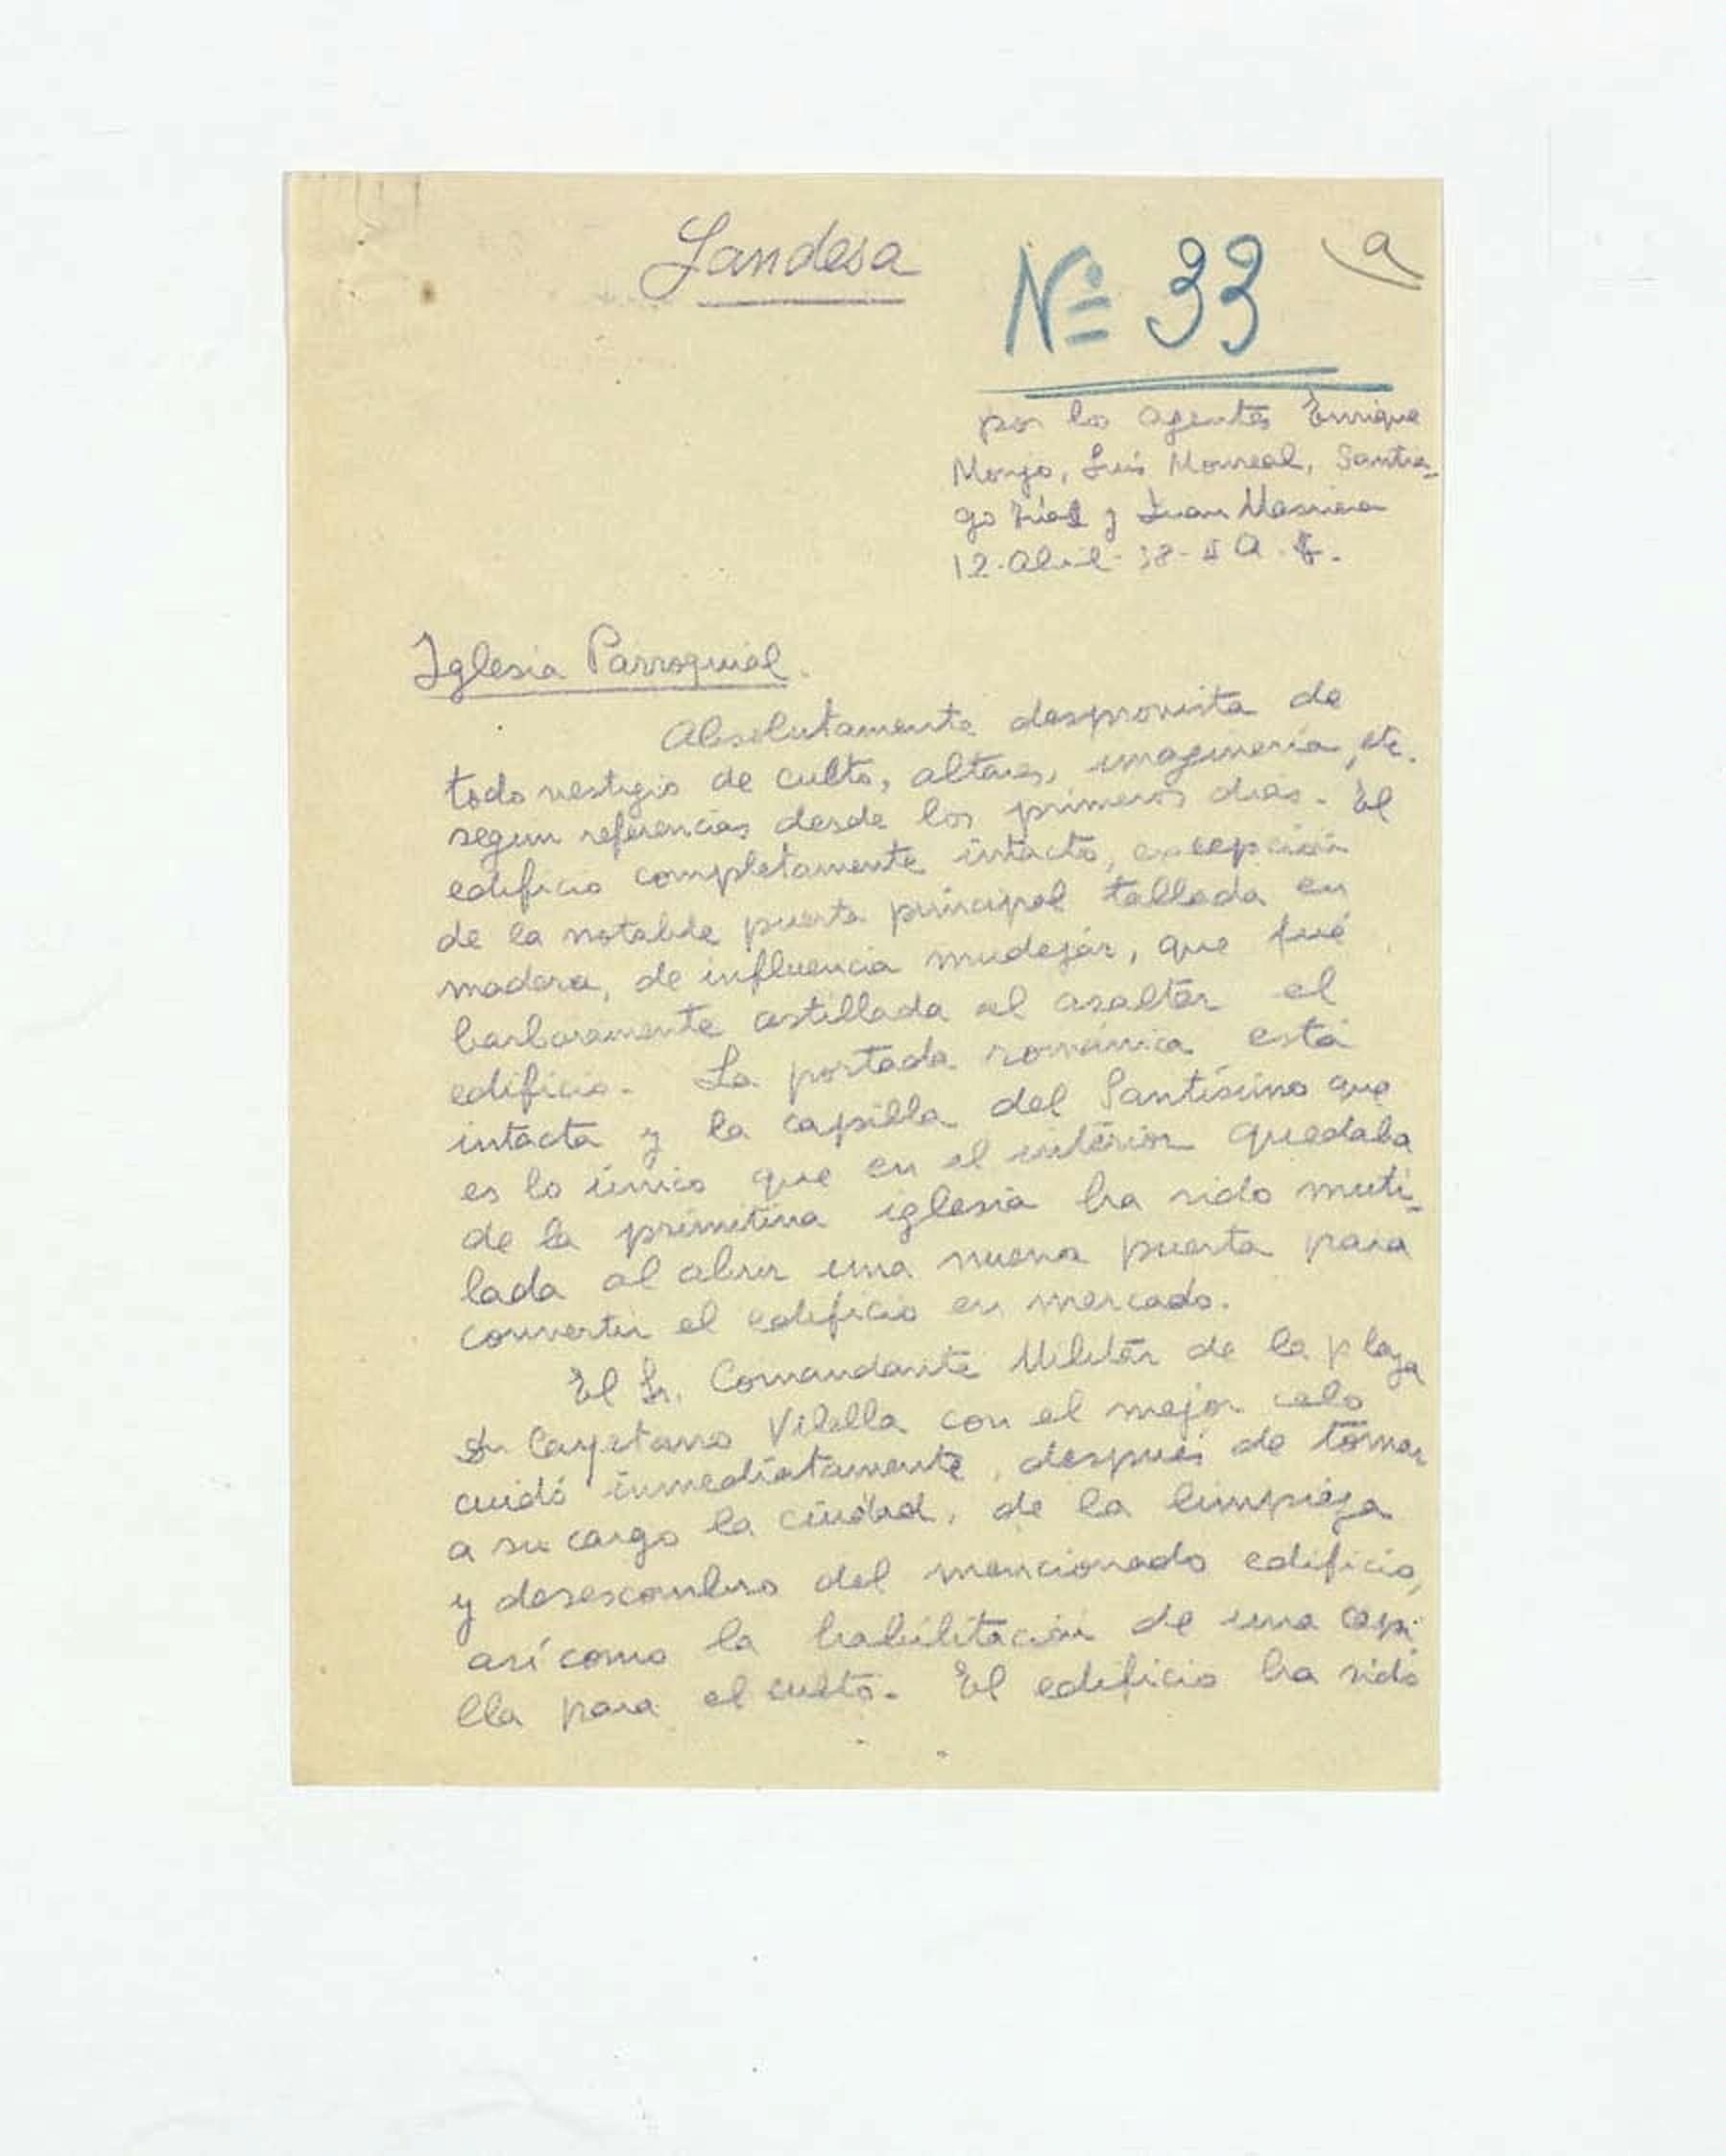 Gandesa
Nº 33
a
por los agentes Enrique
Monjo, Luis Monreal, Santia-
go Díaz y Juan Masriera
12-Abril-38-II A. T.
Iglesia Parroquial.
Absolutamente desprovista de
todo vestigio de culto, altares, imagineria, etc.
segun referencias desde los primeros dias. El
edificio completamente intacto, excepción
de la notable puerta principal tallada en
madera, de influencia mudejár, que fué
barbaramente astillada al asaltar el
edificio. La portada románica está
intacta y la capilla del Santísimo que
es lo único que en el interior quedaba
de la primitiva iglesia ha sido muti-
lada al abrir una nueva puerta para
convertir el edificio en mercado.
El Sr. Comandante Militar de la plaza
Dn Cayetano Vilella con el mejor celo
cuidó inmediatamente, después de tomar
a su cargo la ciudad, de la limpieza
y desescombro del mencionado edificio,
así como la habilitación de una capi-
lla para el culto. El edificio ha sido